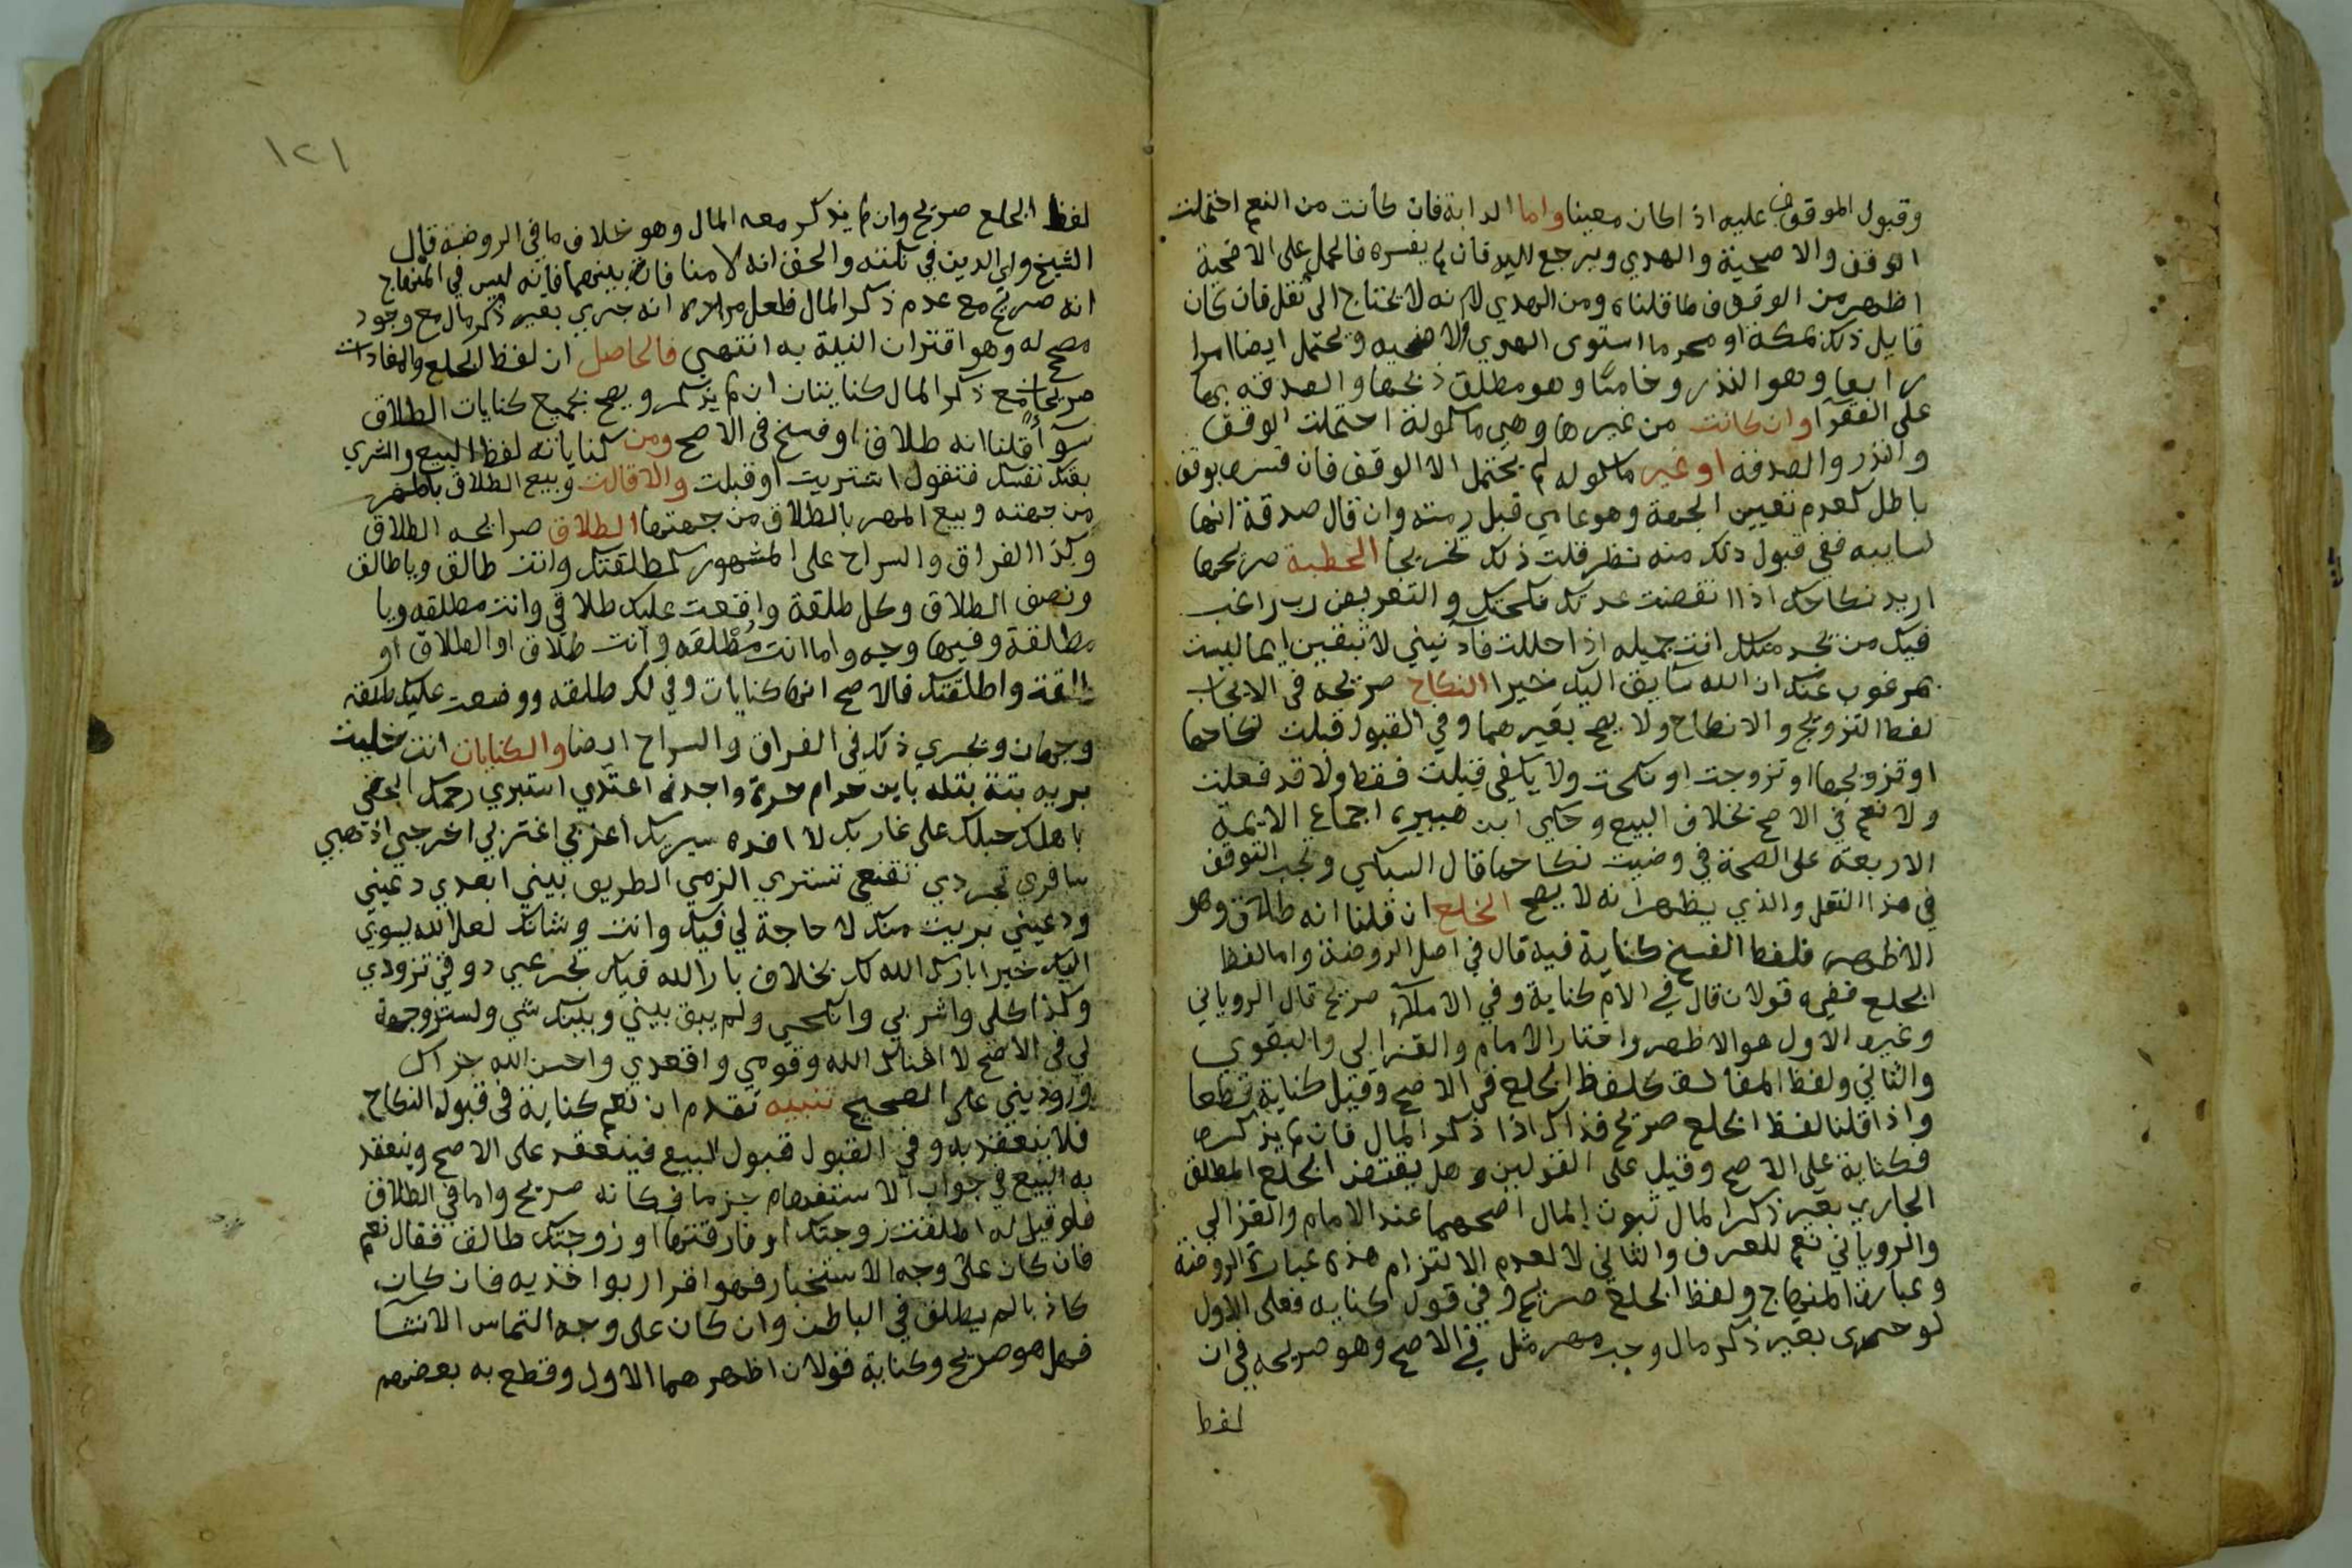 وقبول الموقوف عليه اذا كان معينا واما الدابة فان كانت من النعم احتملت
الوقف والاضحية والهدي ويرجع اليه فان لم يفسره فالحمل على الاضحية
اظهر من الوقف لما قلناه ومن الهدي لانه لا يحتاج الى نقل فان كان
قايل ذلك بمكة او محرما استوى الهدي والاضحيه ويحتمل ايضا امرا
رابعا وهو النذر وخامسا وهو مطلق ذبحها والصدقه بها
على الفقرآ وان كانت من غيرها وهي ماكولة احتملت الوقف
والنذر والصدقه او غير ماكوله لم يحتمل الا الوقف فان فسره بوقف
باطل كعدم تعيين الجهة وهو عامي قبل منه وان قال صدقة انها
سايبه ففي قبول ذلك منه نظر قلت ذلك تخريجا الخطبة صريحها
اريد نكاحك اذا انقضت عدتك نكحتك والتعريض رب راغب
فيك من يجد مثلك انت جميله اذا حللت فآذنيني لا تبقين ايما لست
بمرغوب عنك ان الله سايق اليك خيرا النكاح صريحه في الايجاب
لفظ التزويج والانكاح ولا يصح بغيرهما وفي القبول قبلت نكاحها
او تزويجها او تزوجت او نكحت ولا يكفي قبلت فقط ولا قد فعلت
ولا نعم في الاصح بخلاف البيع وحكى ابن هبيرة اجماع الايمة
الاربعة على الصحة في رضيت نكاحها قال السبكي ويجب التوقف
في هذا النقل والذي يظهر انه لا يصح الخلع ان قلنا انه طلاق وهو
الاظهر فلفظ الفسخ كناية فيه قال في اصل الروضة واما لفظ
الخلع ففيه قولان قال في الام كناية وفي الاملآء صريح قال الروياني
وغيره الاول هو الاظهر واختار الامام والغزالي والبغوي
والثاني ولفظ المفاداة كلفظ الخلع في الاصح وقيل كناية قطعا
واذا قلنا لفظ الخلع صريح فذاك اذا ذكر المال فان لم يذكره
فكناية على الاصح وقيل على القولين وهل يقتضي الخلع المطلق
الجاري بغير ذكر المال ثبوت المال اصحهما عند الامام والغزالي
والروياني نعم للعرف والثاني لا لعدم الالتزام هذه عبارة الروضة
وعبارة المنهاج ولفظ الخلع صريح وفي قول كنايه فعلى الاول
لو جرى بغير ذكر مال وجب مهر مثل في الاصح وهو صريحه في ان
لفظ
١٢١
لفظ الخلع صريح وان لم يذكر معه المال وهو خلاف ما في الروضة قال
الشيخ ولي الدين في نكته والحق انه لا منافاة بينهما فانه ليس في المنهاج
انه صريح مع عدم ذكر المال فلعل مراده انه جرى بغير ذكر مال مع وجود
مصحح له وهو اقتران النية به انتهى فالحاصل ان لفظ الخلع والمفادات
صريحان مع ذكر المال كنايتان ان لم يذكر ويصح بجميع كنايات الطلاق
سوآء قلنا انه طلاق او فسخ في الاصح ومن كناياته لفظ البيع والشري
بعتك نفسك فتقول اشتريت او قبلت والاقالت وبيع الطلاق بالمهر
من جهته وبيع المهر بالطلاق من جهتها الطلاق صرايحه الطلاق
وكذا الفراق والسراح على المشهور كطلقتك وانت طالق ويا طالق
ونصف الطلاق وكل طلقة واوقعت عليك طلاقي وانت مطلقه ويا
مطلقة وفيها وجه واما انت مُطْلَقه وانت طلاق او الطلاق او
طالقة واطلقتك فالاصح انها كنايات وفي لك طلقه ووضعت عليك طلقه
وجهان ويجري ذلك في الفراق والسراح ايضا والكنايات انت خلية
بريه بتة بتله باين حرام حرة واحدة اعتدي استبري رحمك الحقي
باهلك حبلك على غاربك لا انده سربك اعزبي اغتربي اخرجي اذهبي
سافري تجردي تقنعي تستري الزمي الطريق بيني ابعدي دعيني
ودعيني بريت منك لا حاجة لي فيك وانت وشانك لعل الله يسوق
اليك خيرا بارك الله لك بخلاف بارك الله فيك تجرعي ذوقي تزودي
وكذا كلي واشربي وانكحي ولم يبق بيني وبينك شي ولست زوجة
لي في الاصح لا اغناك الله وقومي واقعدي واحسن الله جزاك
وزوديني على الصحيح تنبيه تقدم ان نعم كناية في قبول النكاح
فلا ينعقد به وفي القبول قبول البيع فينعقد على الاصح وينعقد
به البيع في جواب الاستفهام جزما فكانه صريح واما في الطلاق
فلو قيل له اطلقت زوجتك او فارقتها او زوجتك طالق فقال نعم
فان كان على وجه الاستخبار فهو اقرار يواخذ به فان كان
كاذبا لم يطلق في الباطن وان كان على وجه التماس الانشآ
فهل هو صريح وكناية قولان اظهرهما الاول وقطع به بعضهم